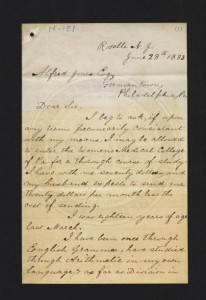 H-181
(1)
Roselle N. J.
June 28th 1883
Alfred Jones Esq
Germantown,
Philadelphia, Pa
Dear Sir,
I beg to ask, if upon
any terms pecuniarily consistent
with my means, I may be allowed
to enter the Womans Medical College
of Pa for a thorough course of study.
I have with me seventy dollars and
my husband expects to send me
twenty dollars per month less the
cost of sending.
I was eighteen years of age
last March.
I have been once through
English Grammar, have studied
through Arithmetic in my own
language, & as far as Division in